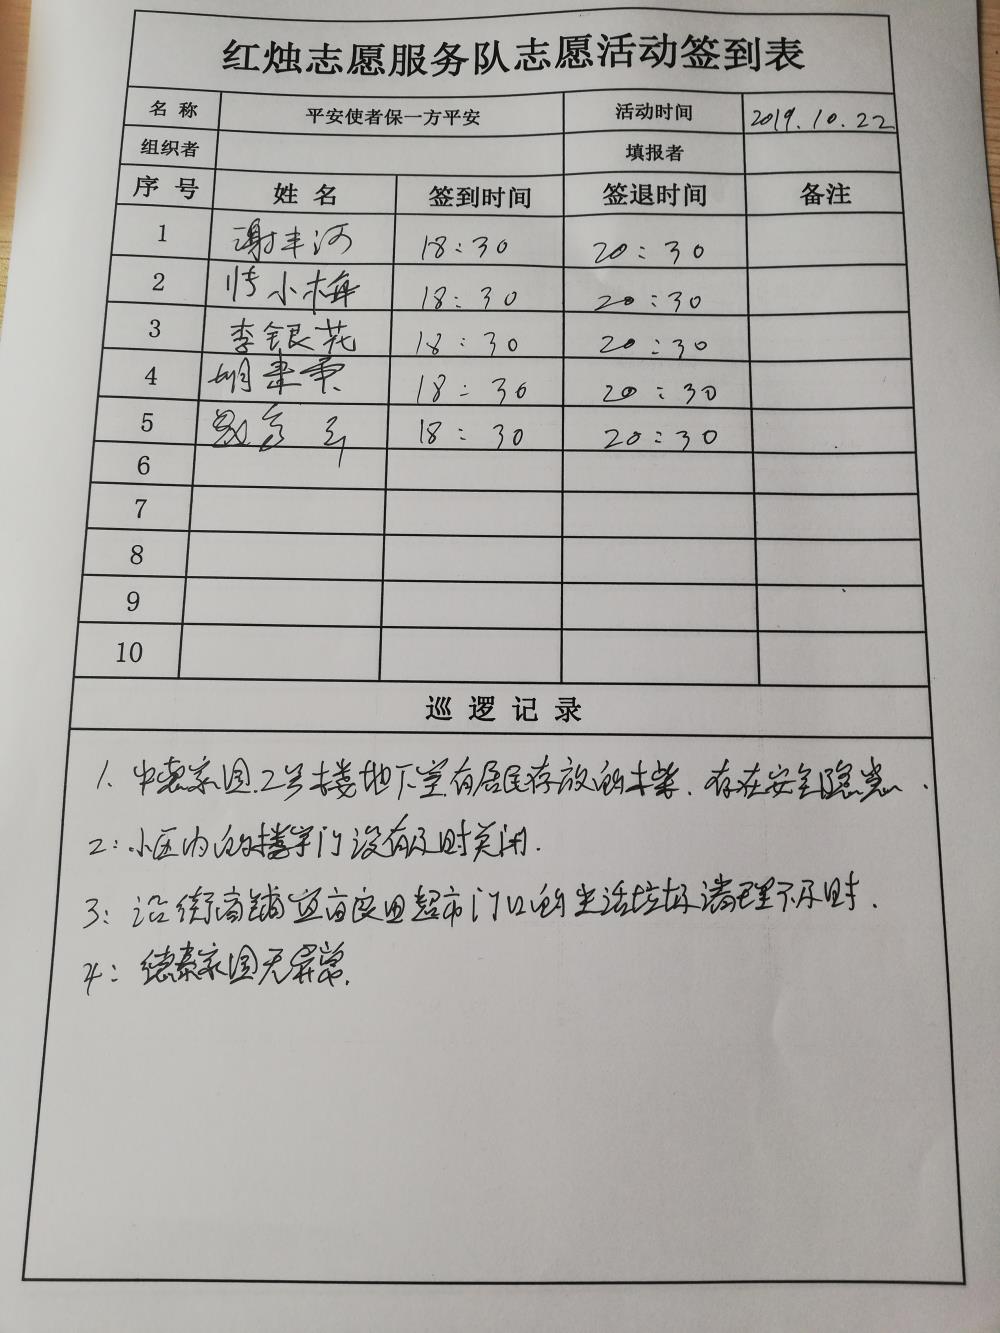 红烛志愿服务队志愿活动签到表
名 称 平安使者保一方平安 活动时间 2019.10.22
组织者 填报者
序 号 姓 名 签到时间 签退时间 备注
1 谢丰河 18:30 20:30
2 小梅 18:30 20:30
3 李银花 18:30 20:30
4 胡 18:30 20:30
5 18:30 20:30
6
7
8
9
10
巡 逻 记 录
1. 中惠家园.2号楼地下室有居民存放的木柴.存在安全隐患.
2:小区内的楼宇门没有及时关闭.
3:沿街商铺 超市门口的生活垃圾清理不及时.
4:德泰家园无异常.